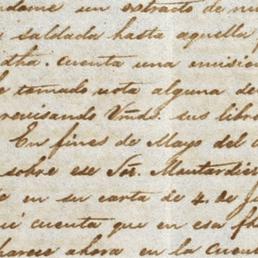 dame un estracto de nu
saldada hasta aquella
dha. cuenta una omision
tomado nota alguna de
revisando Vmds. sus libro
En fines de Mayo del a
sobre ese Sor. Montardier
en su carta de 4. de Ju
cuenta que en esa fh
parece ahora en la cuent